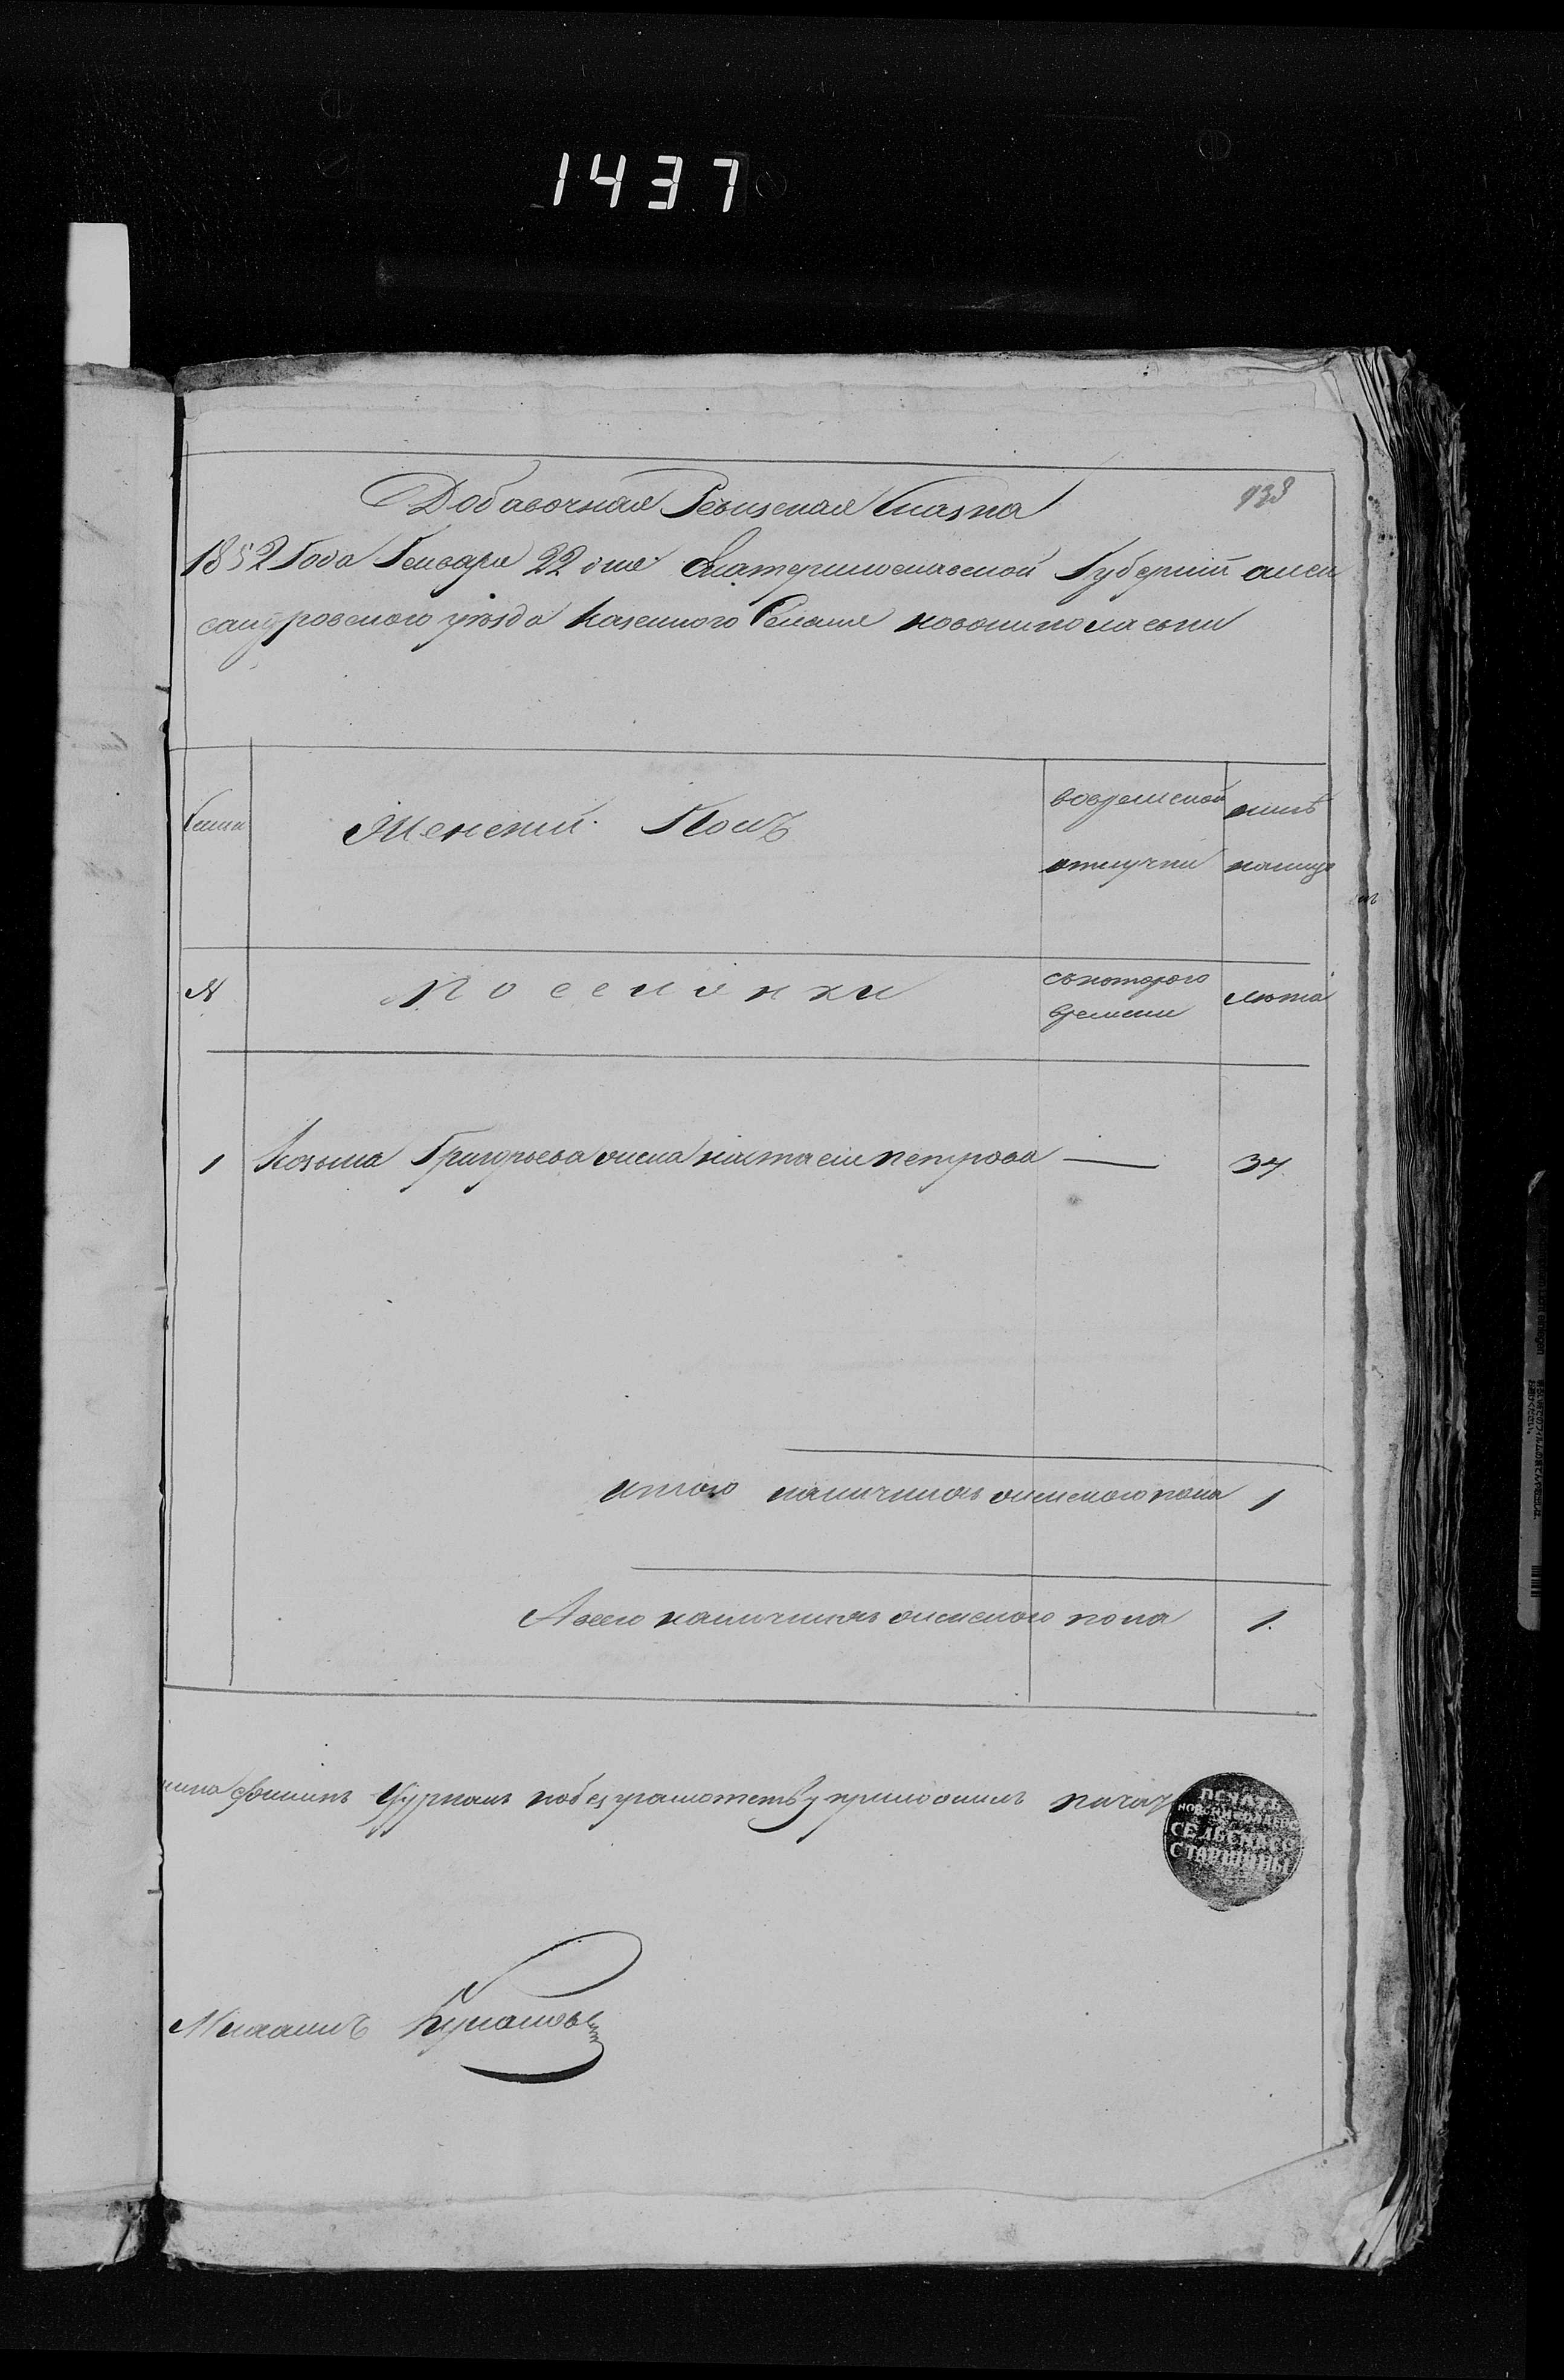 1437
938
Добавочная Ревизская Сказка
1852 Года Генваря 22 дня Екатеринославской Губернии алек
сандровского уезда Казенного Селения новониколаевки
Семьи
Женский Полъ
вовременной
отлучки
ныне
налицо
№
Поселянки
съкоторого
времени
лета
1 Козьма Григорьева жена настасия петрова — 34
итого наличныхъ женского пола 1
Авсего наличныхъ женского пола 1.
фоминъ Курпасъ побезграмотству приложилъ печать
ПЕЧАТЬ
СЕЛЬСКАГО
СТАРШИНЫ
Михаилъ